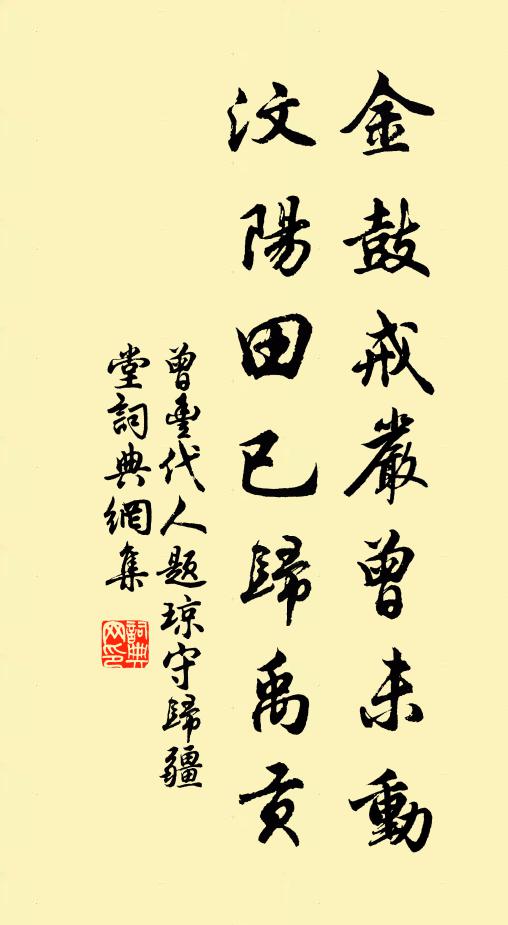 金鼓戒嚴曾未動
汶陽田已歸禹貢
曾豐代人題琼守歸疆
堂詞典網集
詞典网印